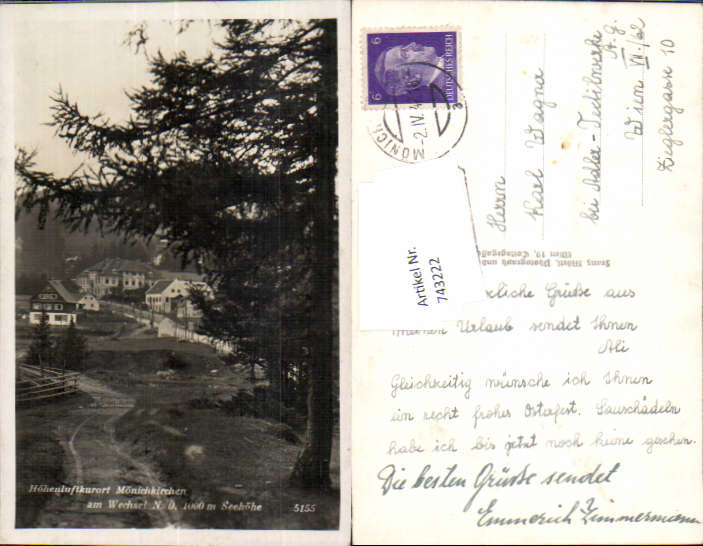 Höhenluftkurort Mönichkirchen
am Wechsel N. D. 1000 m Seehöhe
5155
6
DEUTSCHES REICH
6
MÖNICH
-2.IV.4
Artikel Nr.
743222
Herrn
Karl Wagner
bei Adler-Textilwerke
A.G.
Wien VII./62
Zieglergasse 10
Franz Photograph und
Wien 19, Cottagegasse
Grüße aus
Urlaub sendet Ihnen
Ali
Gleichzeitig wünsche ich Ihnen
ein recht frohes Osterfest. Sauschädeln
habe ich bis jetzt noch keine gesehen.
Die besten Grüsse sendet
Emmerich Zimmermann